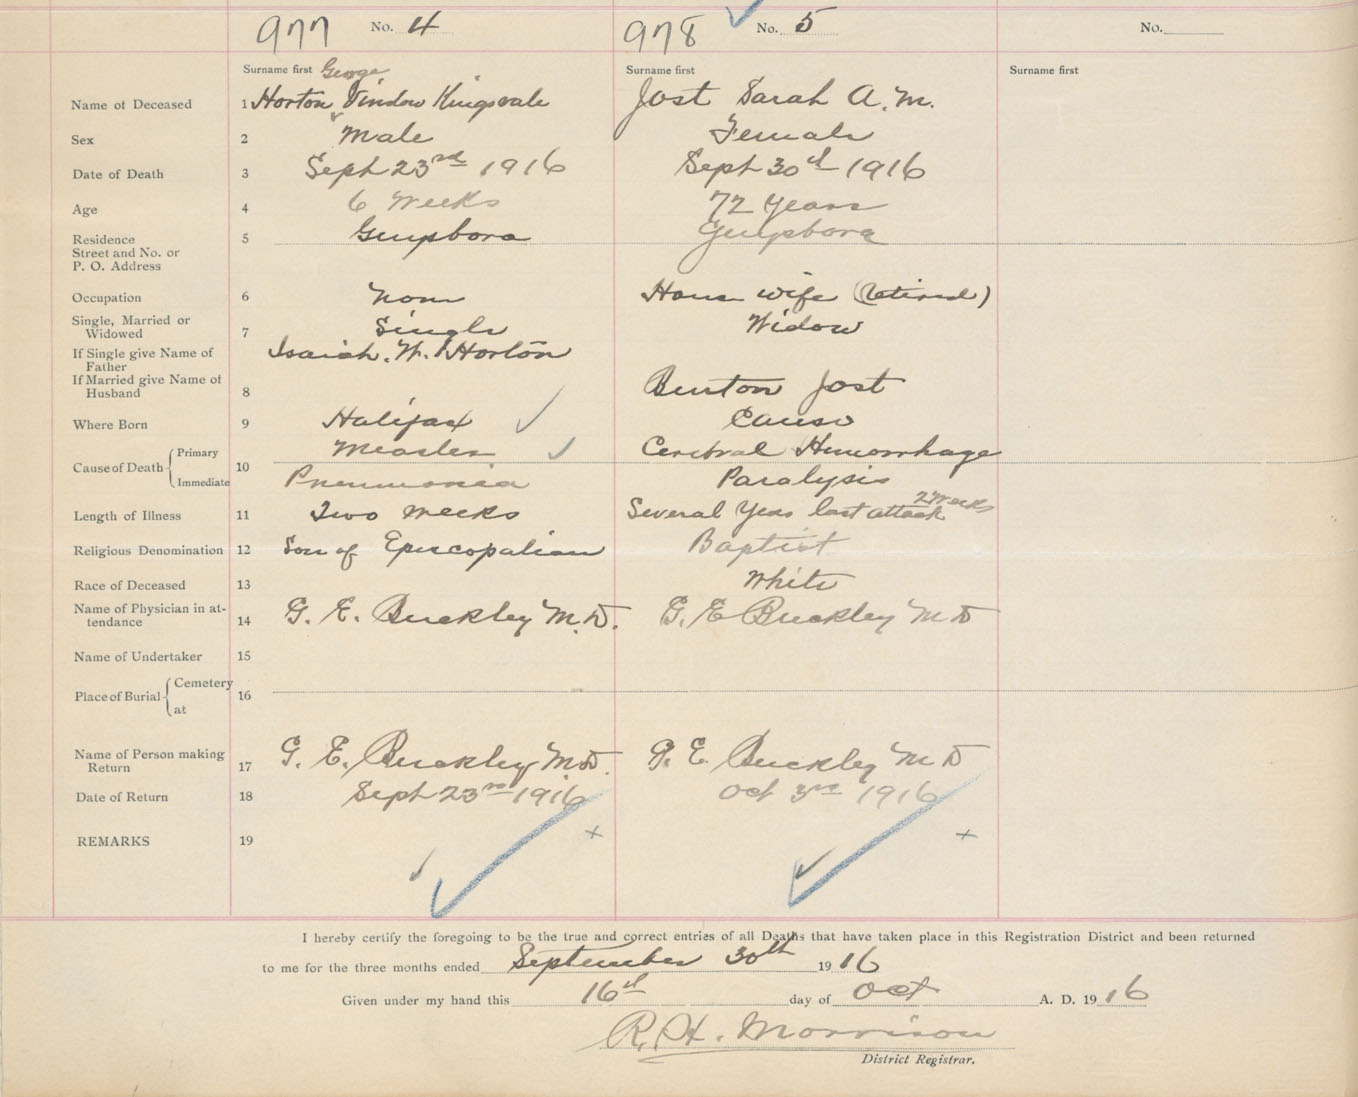 977 No. 4 978 No. 5 No.
Surname first George Surname first Surname first
Name of Deceased 1 Horton Kingsvale Jost Sarah A. M.
Sex 2 Male Female
Date of Death 3 Sept 23rd 1916 Sept 30th 1916
Age 4 6 Weeks 72 Years
Residence 5 Guysboro Guysboro
Street and No. or
P. O. Address
Occupation 6 None House wife (retired)
Single, Married or
Widowed 7 Single Widow
If Single give Name of Isaiah. W. Horton
Father
If Married give Name of
Husband 8 Burton Jost
Where Born 9 Halifax Canso
Cause of Death Primary Measles Cerebral Hemorrhage
10
Immediate Pneumonia Paralysis
Length of Illness 11 Two weeks Several Years last attack 2 Weeks
Religious Denomination 12 Son of Episcopalian Baptist
Race of Deceased 13 White
Name of Physician in at-
tendance 14 G. E. Buckley M.D. G. E Buckley M D
Name of Undertaker 15
Place of Burial Cemetery
16
at
Name of Person making
Return 17 G. E. Buckley M.D. G. E Buckley M D
Date of Return 18 Sept 23rd 1916 Oct 3rd 1916
REMARKS 19
I hereby certify the foregoing to be the true and correct entries of all Deaths that have taken place in this Registration District and been returned
to me for the three months ended September 30th 1916
Given under my hand this 16th day of Oct A. D. 1916
R. H. Morrison
District Registrar.